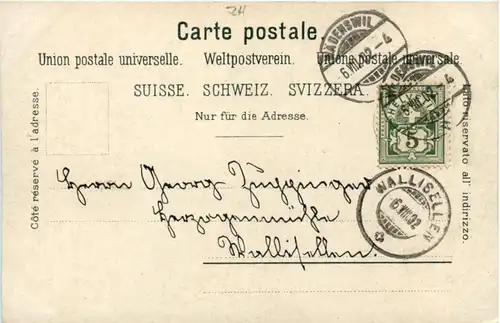 ZH
Carte postale.
Union postale universelle. Weltpostverein. Unione postale universale.
SUISSE. SCHWEIZ. SVIZZERA.
Nur für die Adresse.
Côté réservé à l'adresse.
Lato riservato all' indirizzo.
WÄDENSWIL
6.VIII.02-4
HELVETIA
5
WALLISELLEN
6.VIII.02
Herrn Georg
Herzogenmühle
Wallisellen.